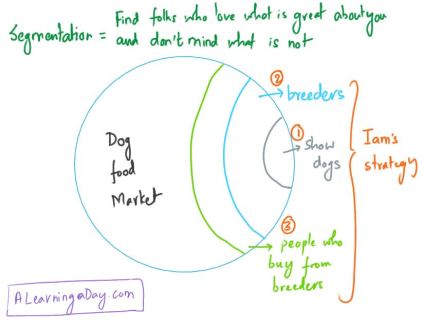 Segmentation = Find folks who love what is great about you
and don't mind what is not
② breeders
① Show
dogs
Iam's
strategy
Dog
food
Market
③ people who
buy from
breeders
ALearningaDay.com